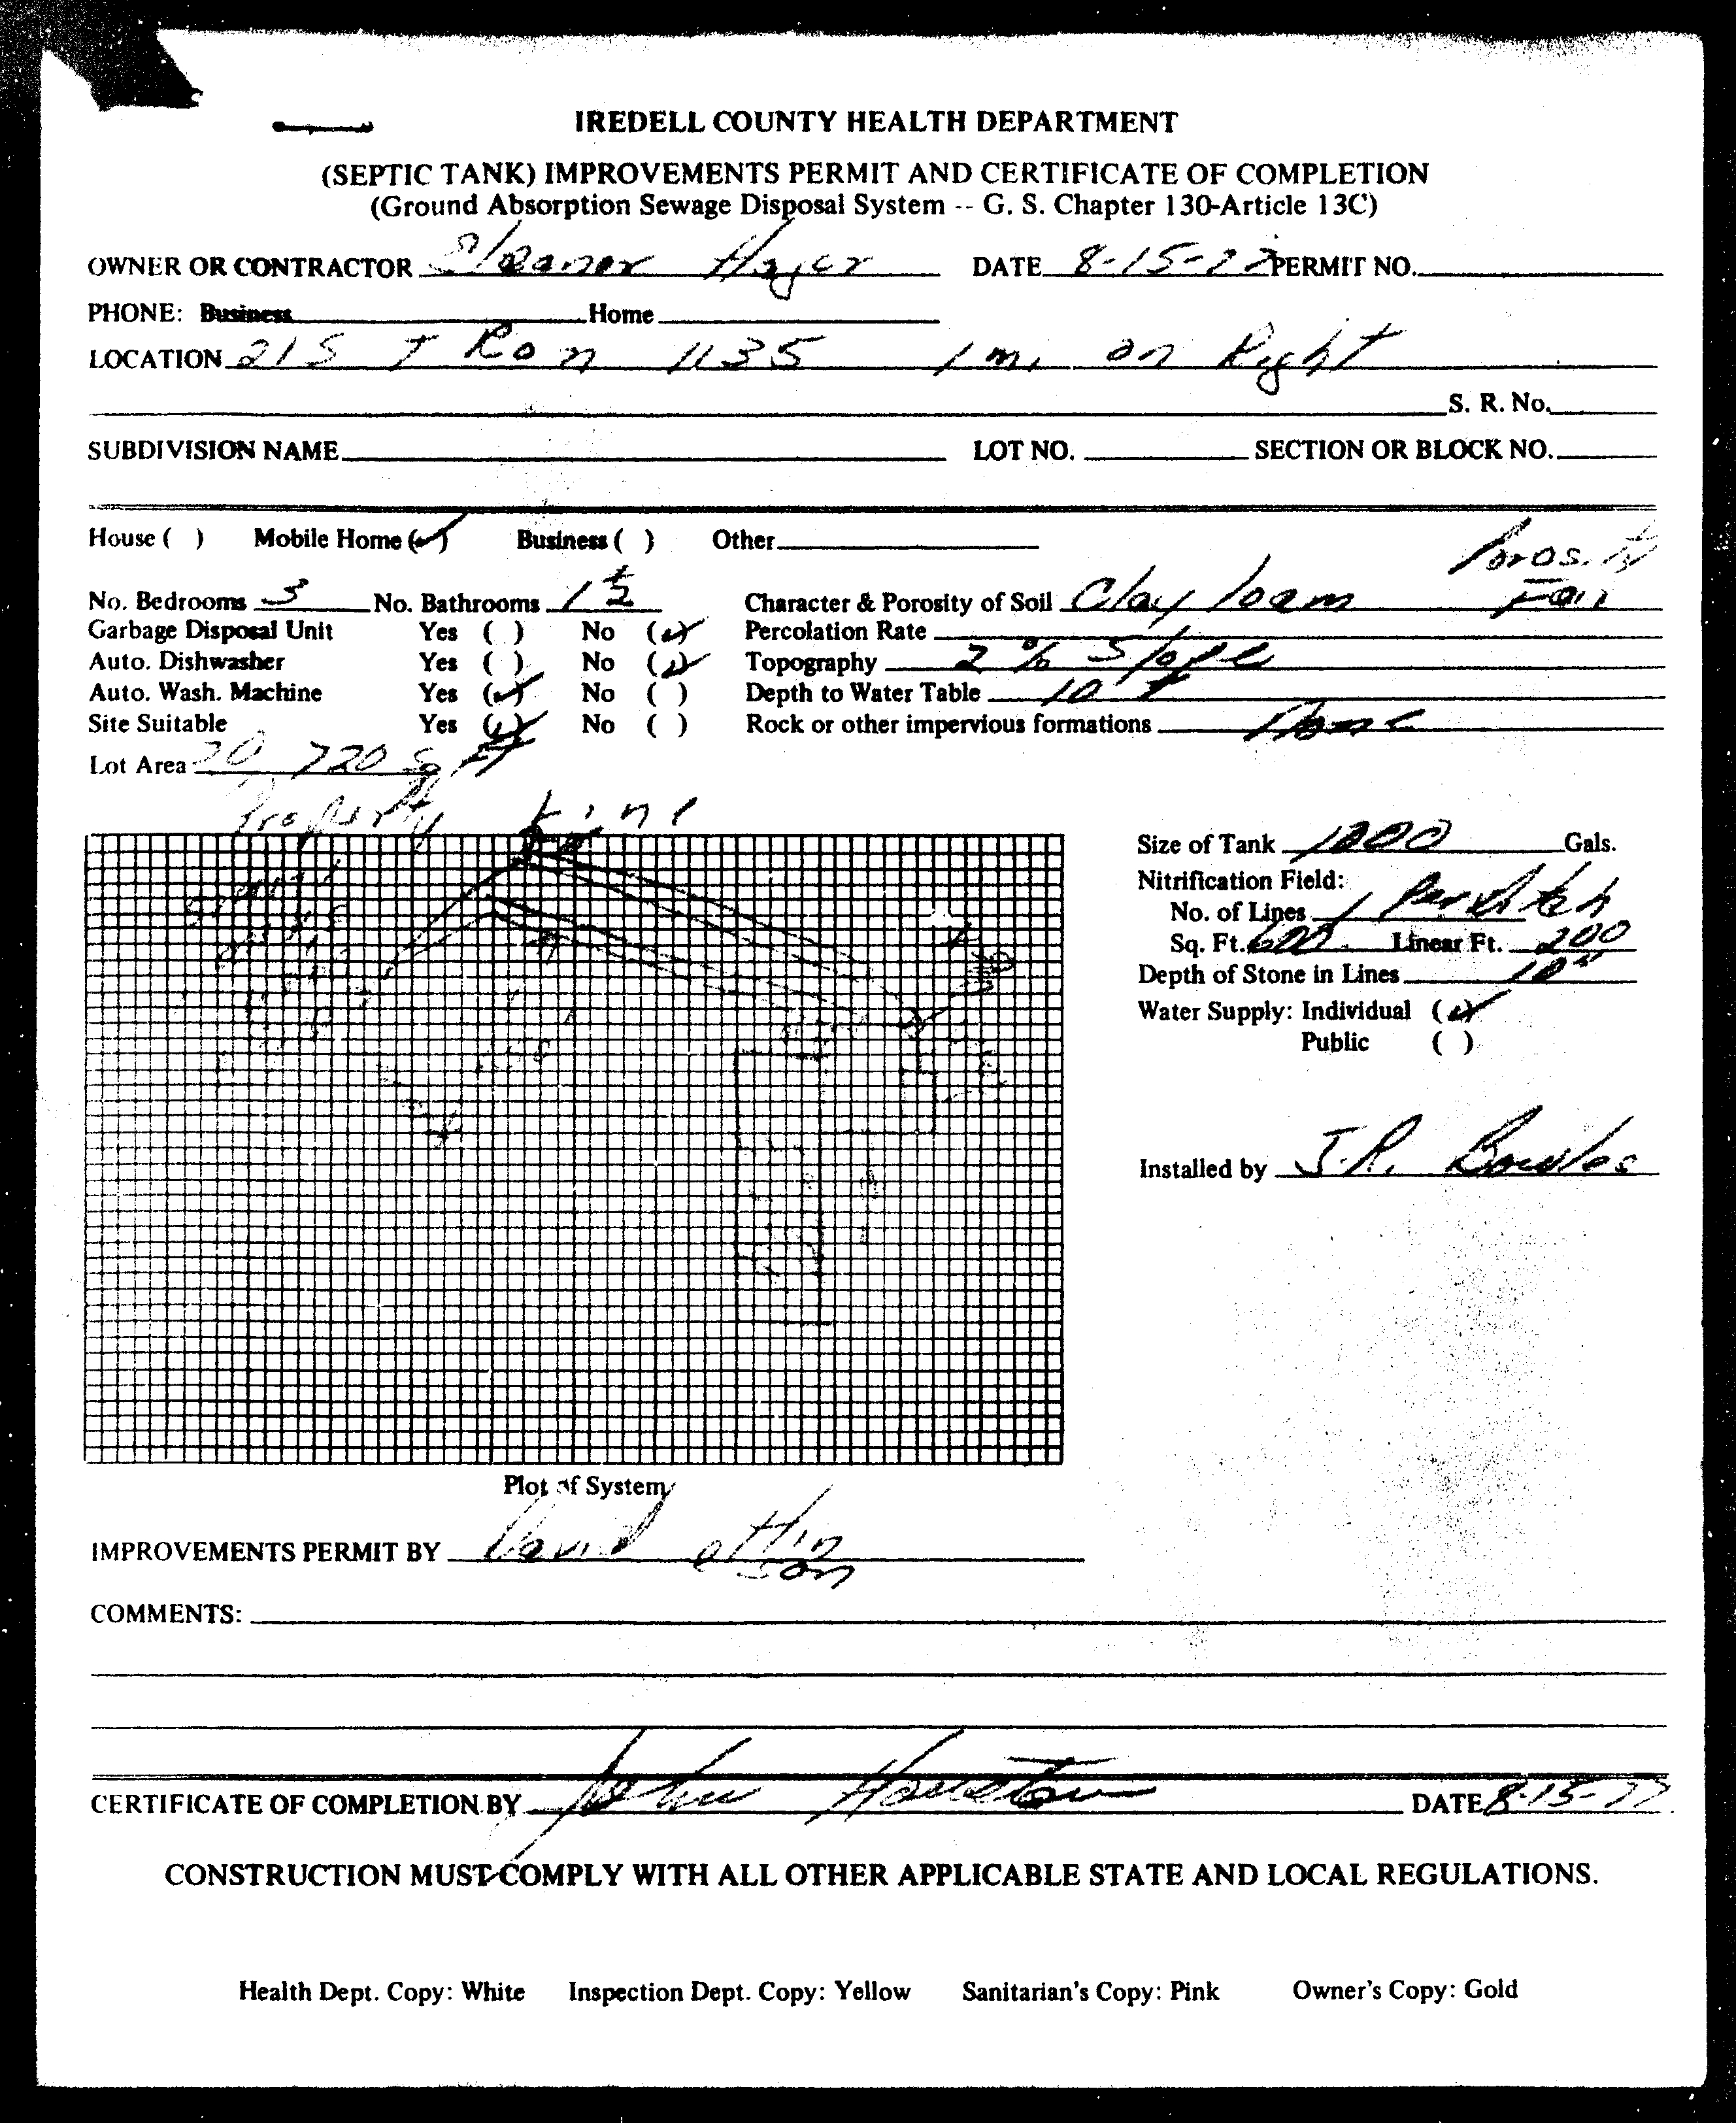 IREDELL COUNTY HEALTH DEPARTMENT
(SEPTIC TANK) IMPROVEMENTS PERMIT AND CERTIFICATE OF COMPLETION
(Ground Absorption Sewage Disposal System -- G. S. Chapter 130-Article 13C)
OWNER OR CONTRACTOR Eleanor Hager DATE 8-15-77 PERMIT NO.
PHONE: Business Home
LOCATION 21S T R on 1135 1 mi on Right
S. R. No.
SUBDIVISION NAME LOT NO. SECTION OR BLOCK NO.
House ( ) Mobile Home (✓) Business ( ) Other
Porosity
No. Bedrooms 3 No. Bathrooms 1 ½ Character & Porosity of Soil Clay loam Fair
Garbage Disposal Unit Yes ( ) No (✓) Percolation Rate
Auto. Dishwasher Yes ( ) No (✓) Topography 2 % Slope
Auto. Wash. Machine Yes (✓) No ( ) Depth to Water Table 10 +
Site Suitable Yes (✓) No ( ) Rock or other impervious formations None
Lot Area 20 720 Sq Ft
Property Line
Size of Tank 1000 Gals.
Nitrification Field:
No. of Lines 1
Sq. Ft. 600 Linear Ft. 200
Depth of Stone in Lines 10"
Water Supply: Individual (✓)
Public ( )
Installed by J.R. Bowles
Plot of System
IMPROVEMENTS PERMIT BY David
COMMENTS:
CERTIFICATE OF COMPLETION BY John Houston DATE 8-15-77
CONSTRUCTION MUST COMPLY WITH ALL OTHER APPLICABLE STATE AND LOCAL REGULATIONS.
Health Dept. Copy: White Inspection Dept. Copy: Yellow Sanitarian's Copy: Pink Owner's Copy: Gold